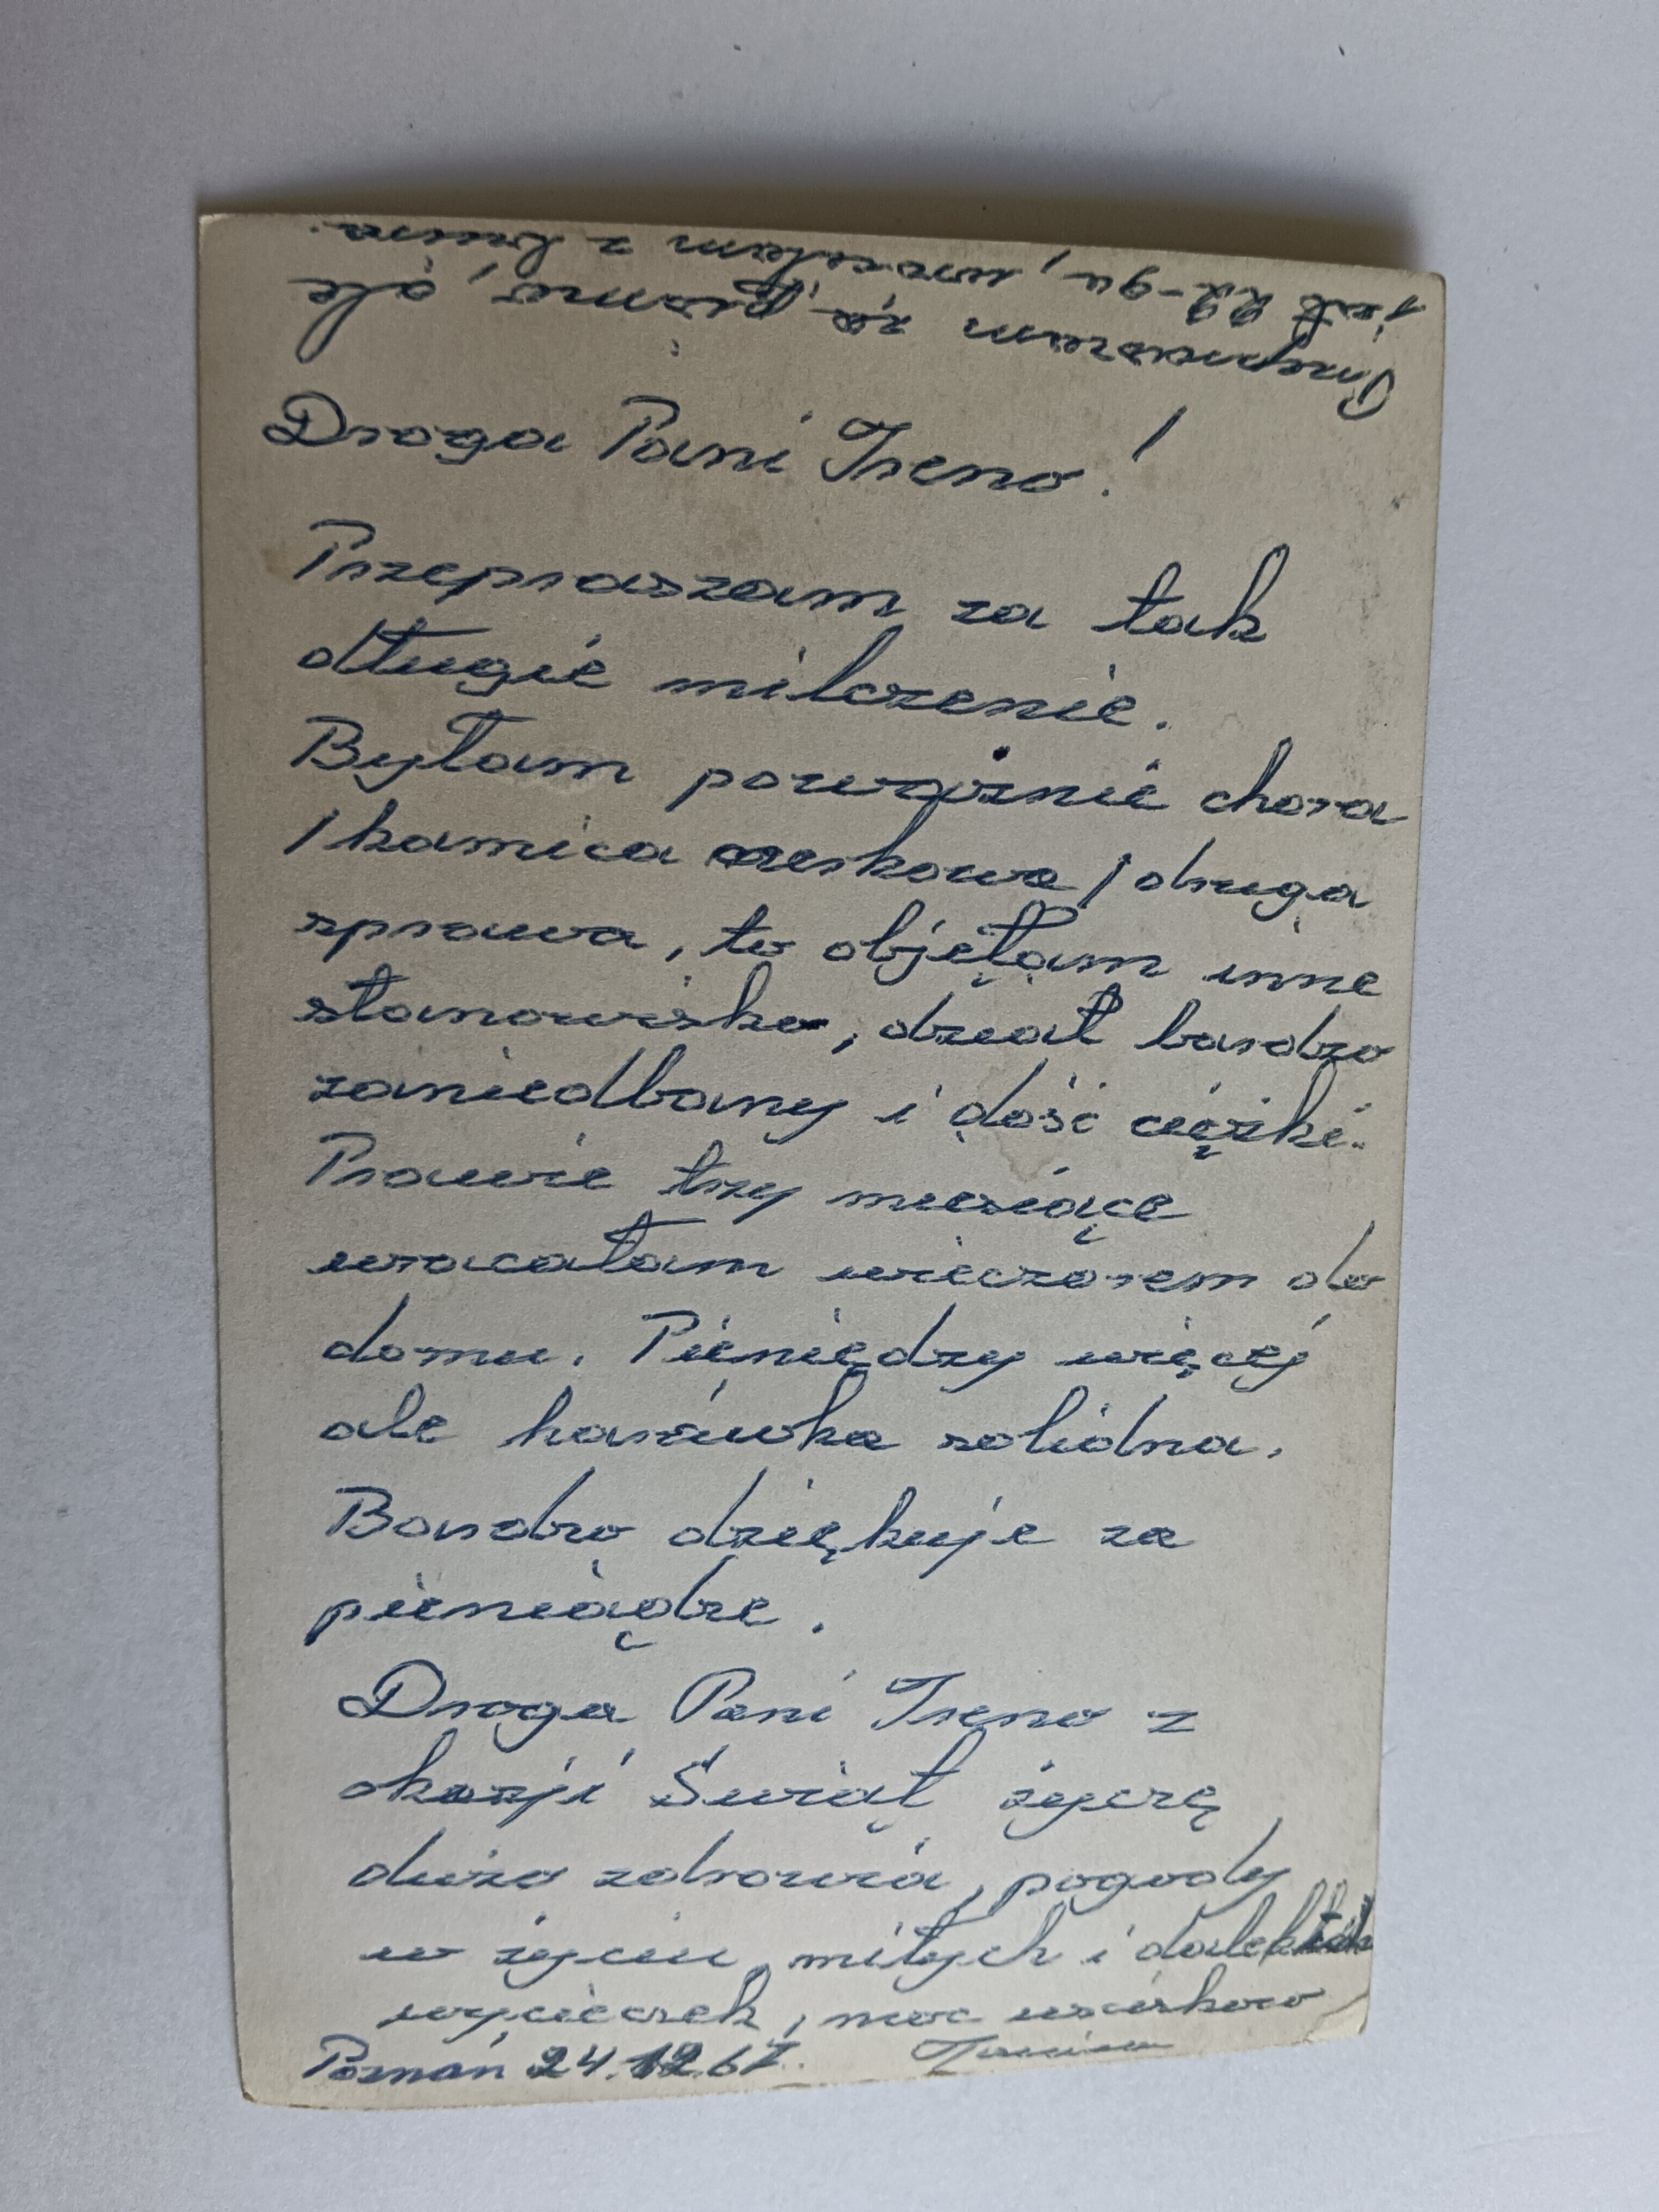 Droga Pani Ireno!
Przepraszam za tak
długie milczenie.
Byłam poważnie chora
/kamica nerkowa/ druga
sprawa, to objęłam inne
stanowisko, dział bardzo
zaniedbany i dość ciężki.
Prawie trzy miesiące
wracałam wieczorem do
domu. Pieniędzy więcej
ale harówka solidna.
Bardzo dziękuje za
pieniądze.
Droga Pani Ireno z
okazji Świąt życzę
dużo zdrowia, pogody
w życiu, miłych i dalekich
wycieczek, moc uścisków
Poznań 24.12.67.
Przepraszam za pismo, ale
jest 22-ga, wracałam z biura.